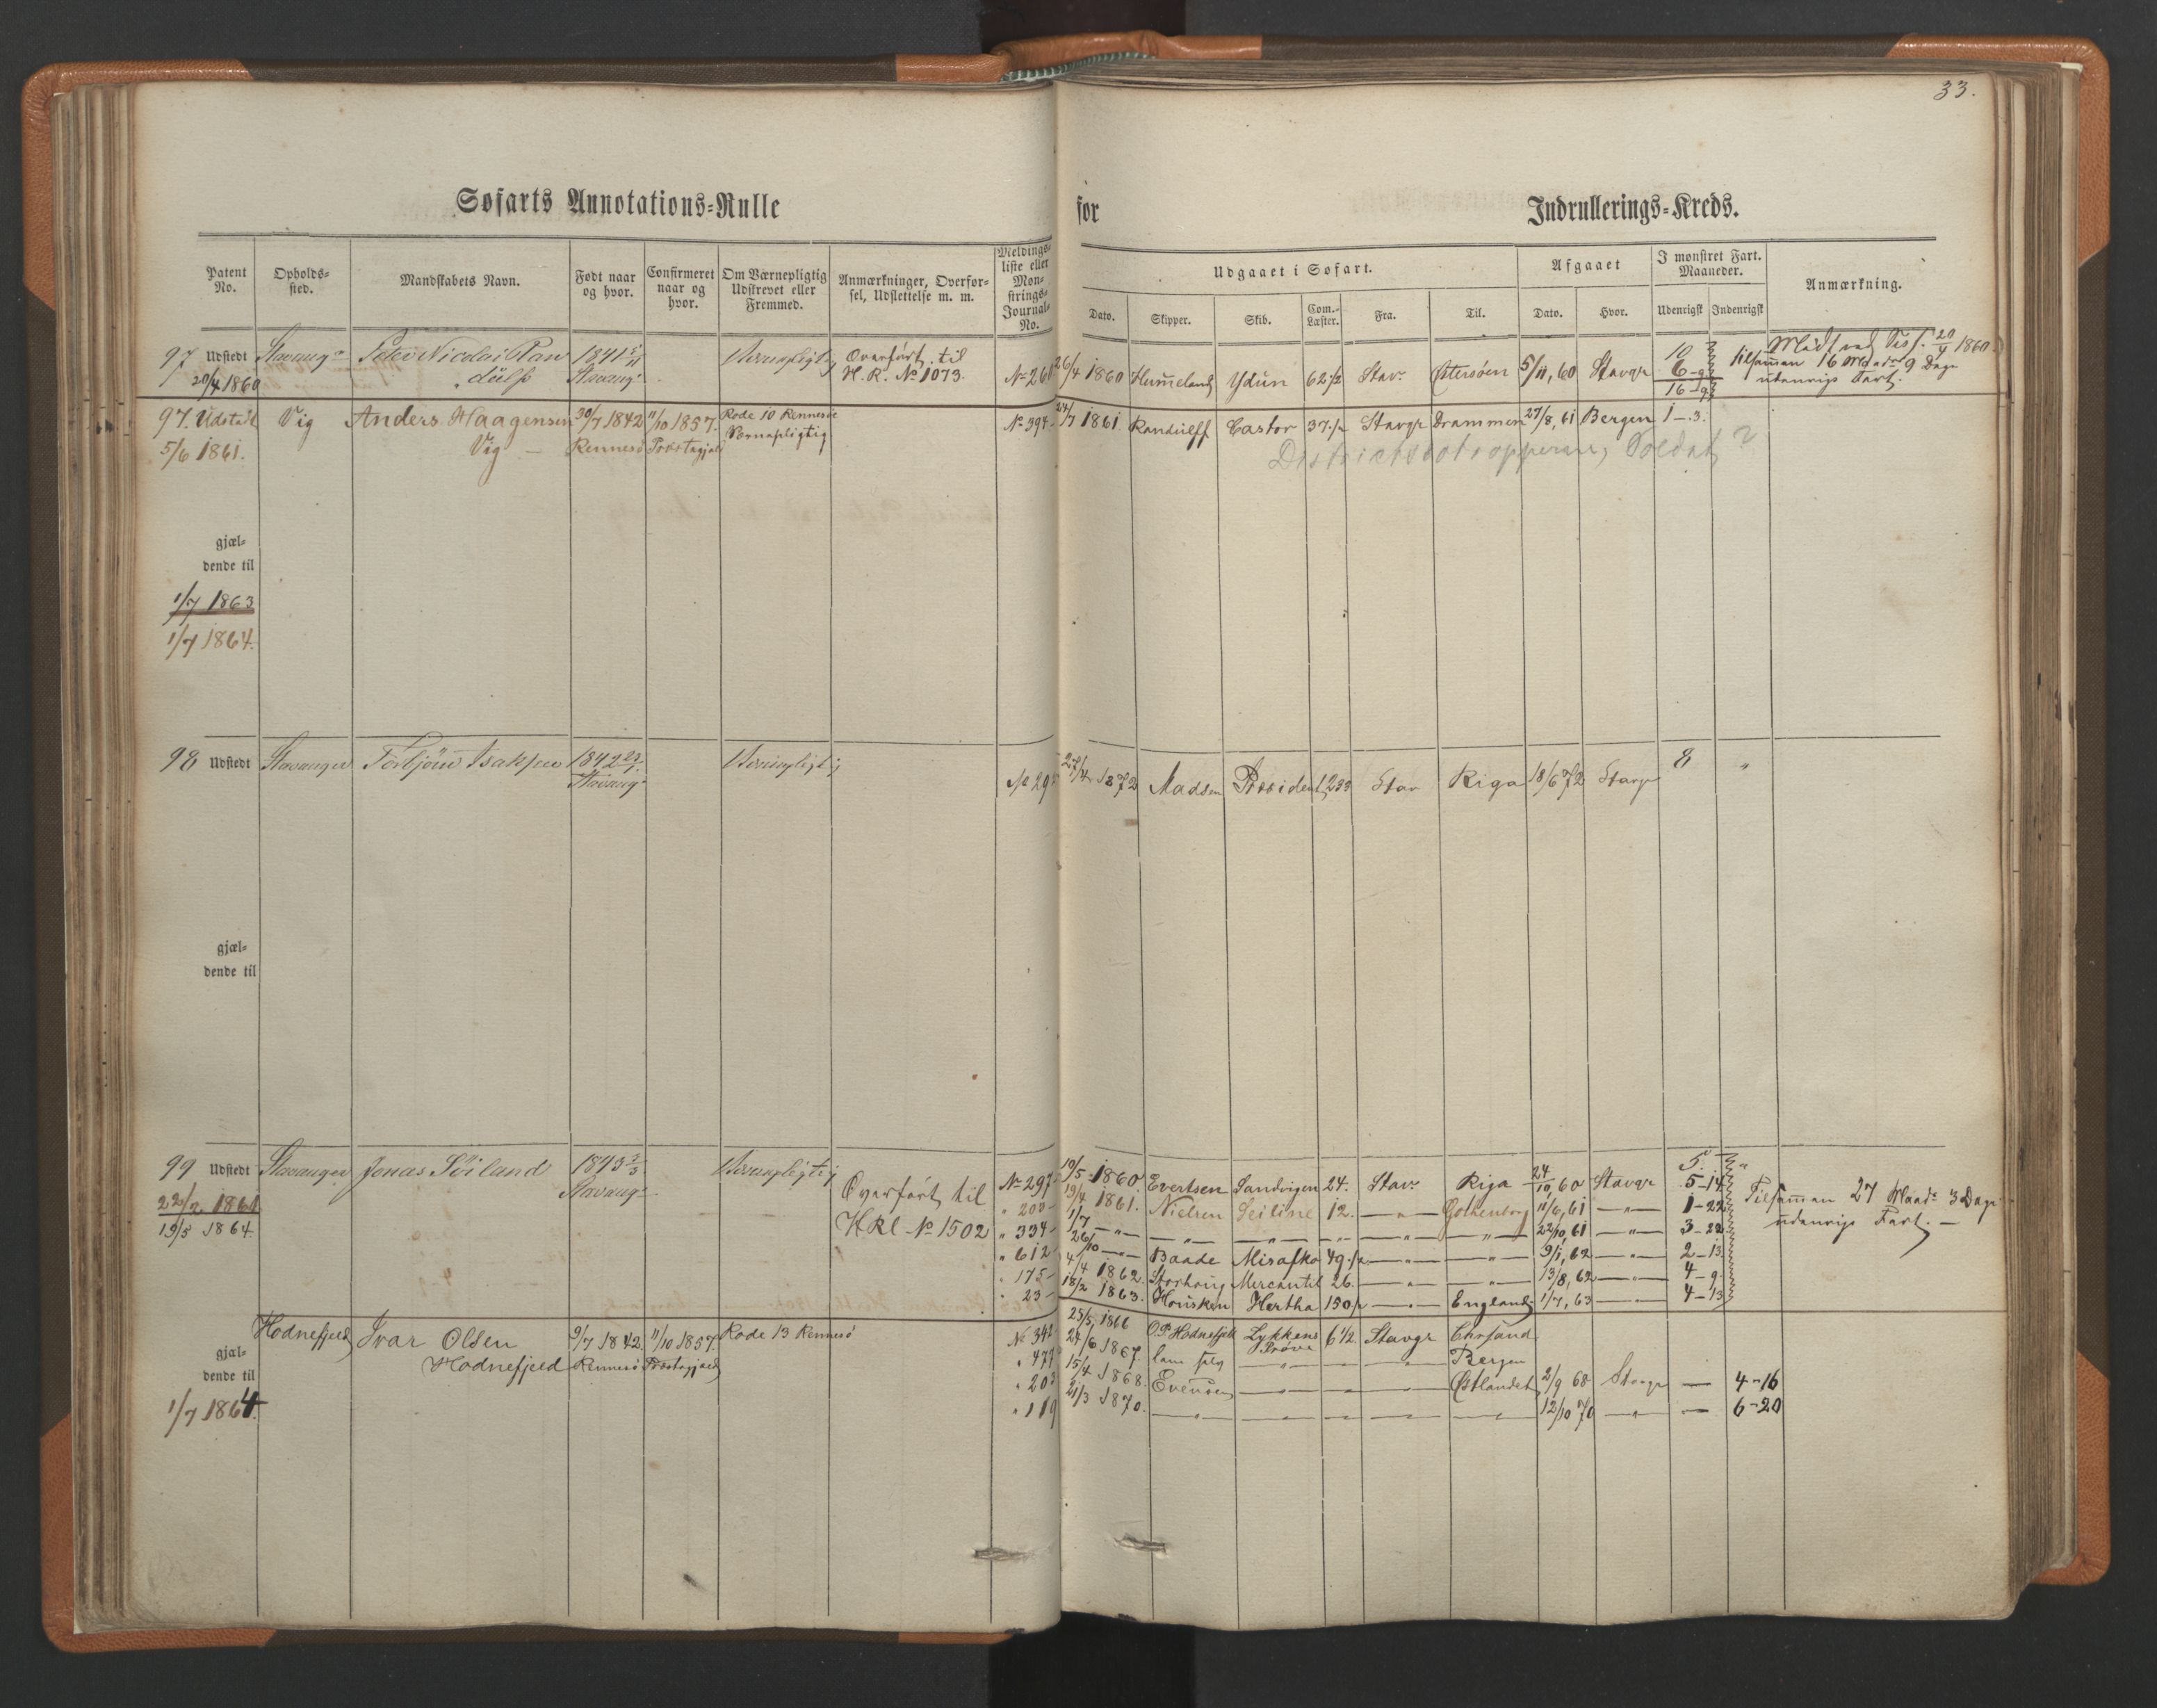 33.
Søfarts Annotations=Rulle for Indrullerings=Kreds.
Patent No.
Opholds=sted.
Mandskabets Navn.
Født naar og hvor.
Confirmeret naar og hvor.
Om Værnepligtig Udskrevet eller Fremmed.
Anmærkninger, Overførsel, Udslettelse m. m.
Meldings=liste eller Mønstrings=Journal=No.
Udgaaet i Søfart.
Dato. Skipper. Skib. Com.-Læster. Fra. Til.
Afgaaet
Dato. Hvor.
I mønstret Fart. Maaneder.
Udenrigsk Indenrigsk
Anmærkning.
97 Udstedt Stavangr Peder Nicolai Ran 1841 5/11 Værnepligtig Overført til No 261 26/4 1860 Hummeland Ydun 62 1/2 Stavr Østersøen 5/11, 60 Stavgr 10
20/4 1860 dulf Stavangr H. R. No 1073. 6-9 Tilsamman 16 Mdr 9 Dage
16-9 udenrigs Fart.
97. Udstedt Vig Anders Haagensen 30/7 1842 11/10 1857. Rode 10 Rennesø No 394 24/7 1861 Randulff Castor 37 1/2 Stavgr Drammen 27/8, 61 Bergen 1-3.
5/6 1861. Vig Rennesø Præstegjeld Værnepligtig
Soldat?
gjæl=
dende til
1/7 1863
1/7 1864.
98 Udstedt Stavanger Torbjørn Isaksen 1842 Værnepligtig
Stavangr
No 29 27/4 1872 Madsen Præsident 233 Stav Riga 18/6 72 Stavgr 8 "
gjæl=
dende til
99 Udstedt Stavanger Jonas Søiland 1843 Værnepligtig No 297 10/5 1860 Evertsen Sandvigen 24. Stavr Riga 24/10, 60 Stavgr 5-14
22/2 1861 Stavangr Overført til " 200 19/4 1861. Nielsen Seiline 12. —"— Gothenborg 11/6, 61 —"— 1-22 Tilsamman 27 Maadr 3 Dage
19/5 1864. HRl No 1502 " 334 1/7 —"— —"— —"— —"— —"— —"— 22/10, 61 —"— 3-22 udenrigs Fart. —
" 612 26/10 —"— Baade Misafko 49 1/2 —"— —"— 9/1, 62 —"— 2-13
" 175 4/4 1862. Storhoug Mercantil 26. —"— —"— 13/8, 62 —"— 4-9
" 23 18/2 1863. Housken Hertha 150 —"— England 1/7, 63 —"— 4-13
Hodnefjeld Ivar Olsen 9/7 1842 11/10 1857. Rode 13 Rennesø No 342 25/5 1866 O.P. Hodnefjeld Lykkens Prøve 6 1/2 Stavgr Chrsand
gjæl= Hodnefjeld Rennesø Præstegjeld " 479 24/6 1867. —"— —"— —"— Bergen
dende til " 203 15/4 1868. Evensen —"— —"— —"— Østlandet 2/9 68 Stavgr — 4-16
1/7 1864. " 119 21/3 1870. —"— —"— —"— —"— —"— 12/10 70 —"— — 6-20